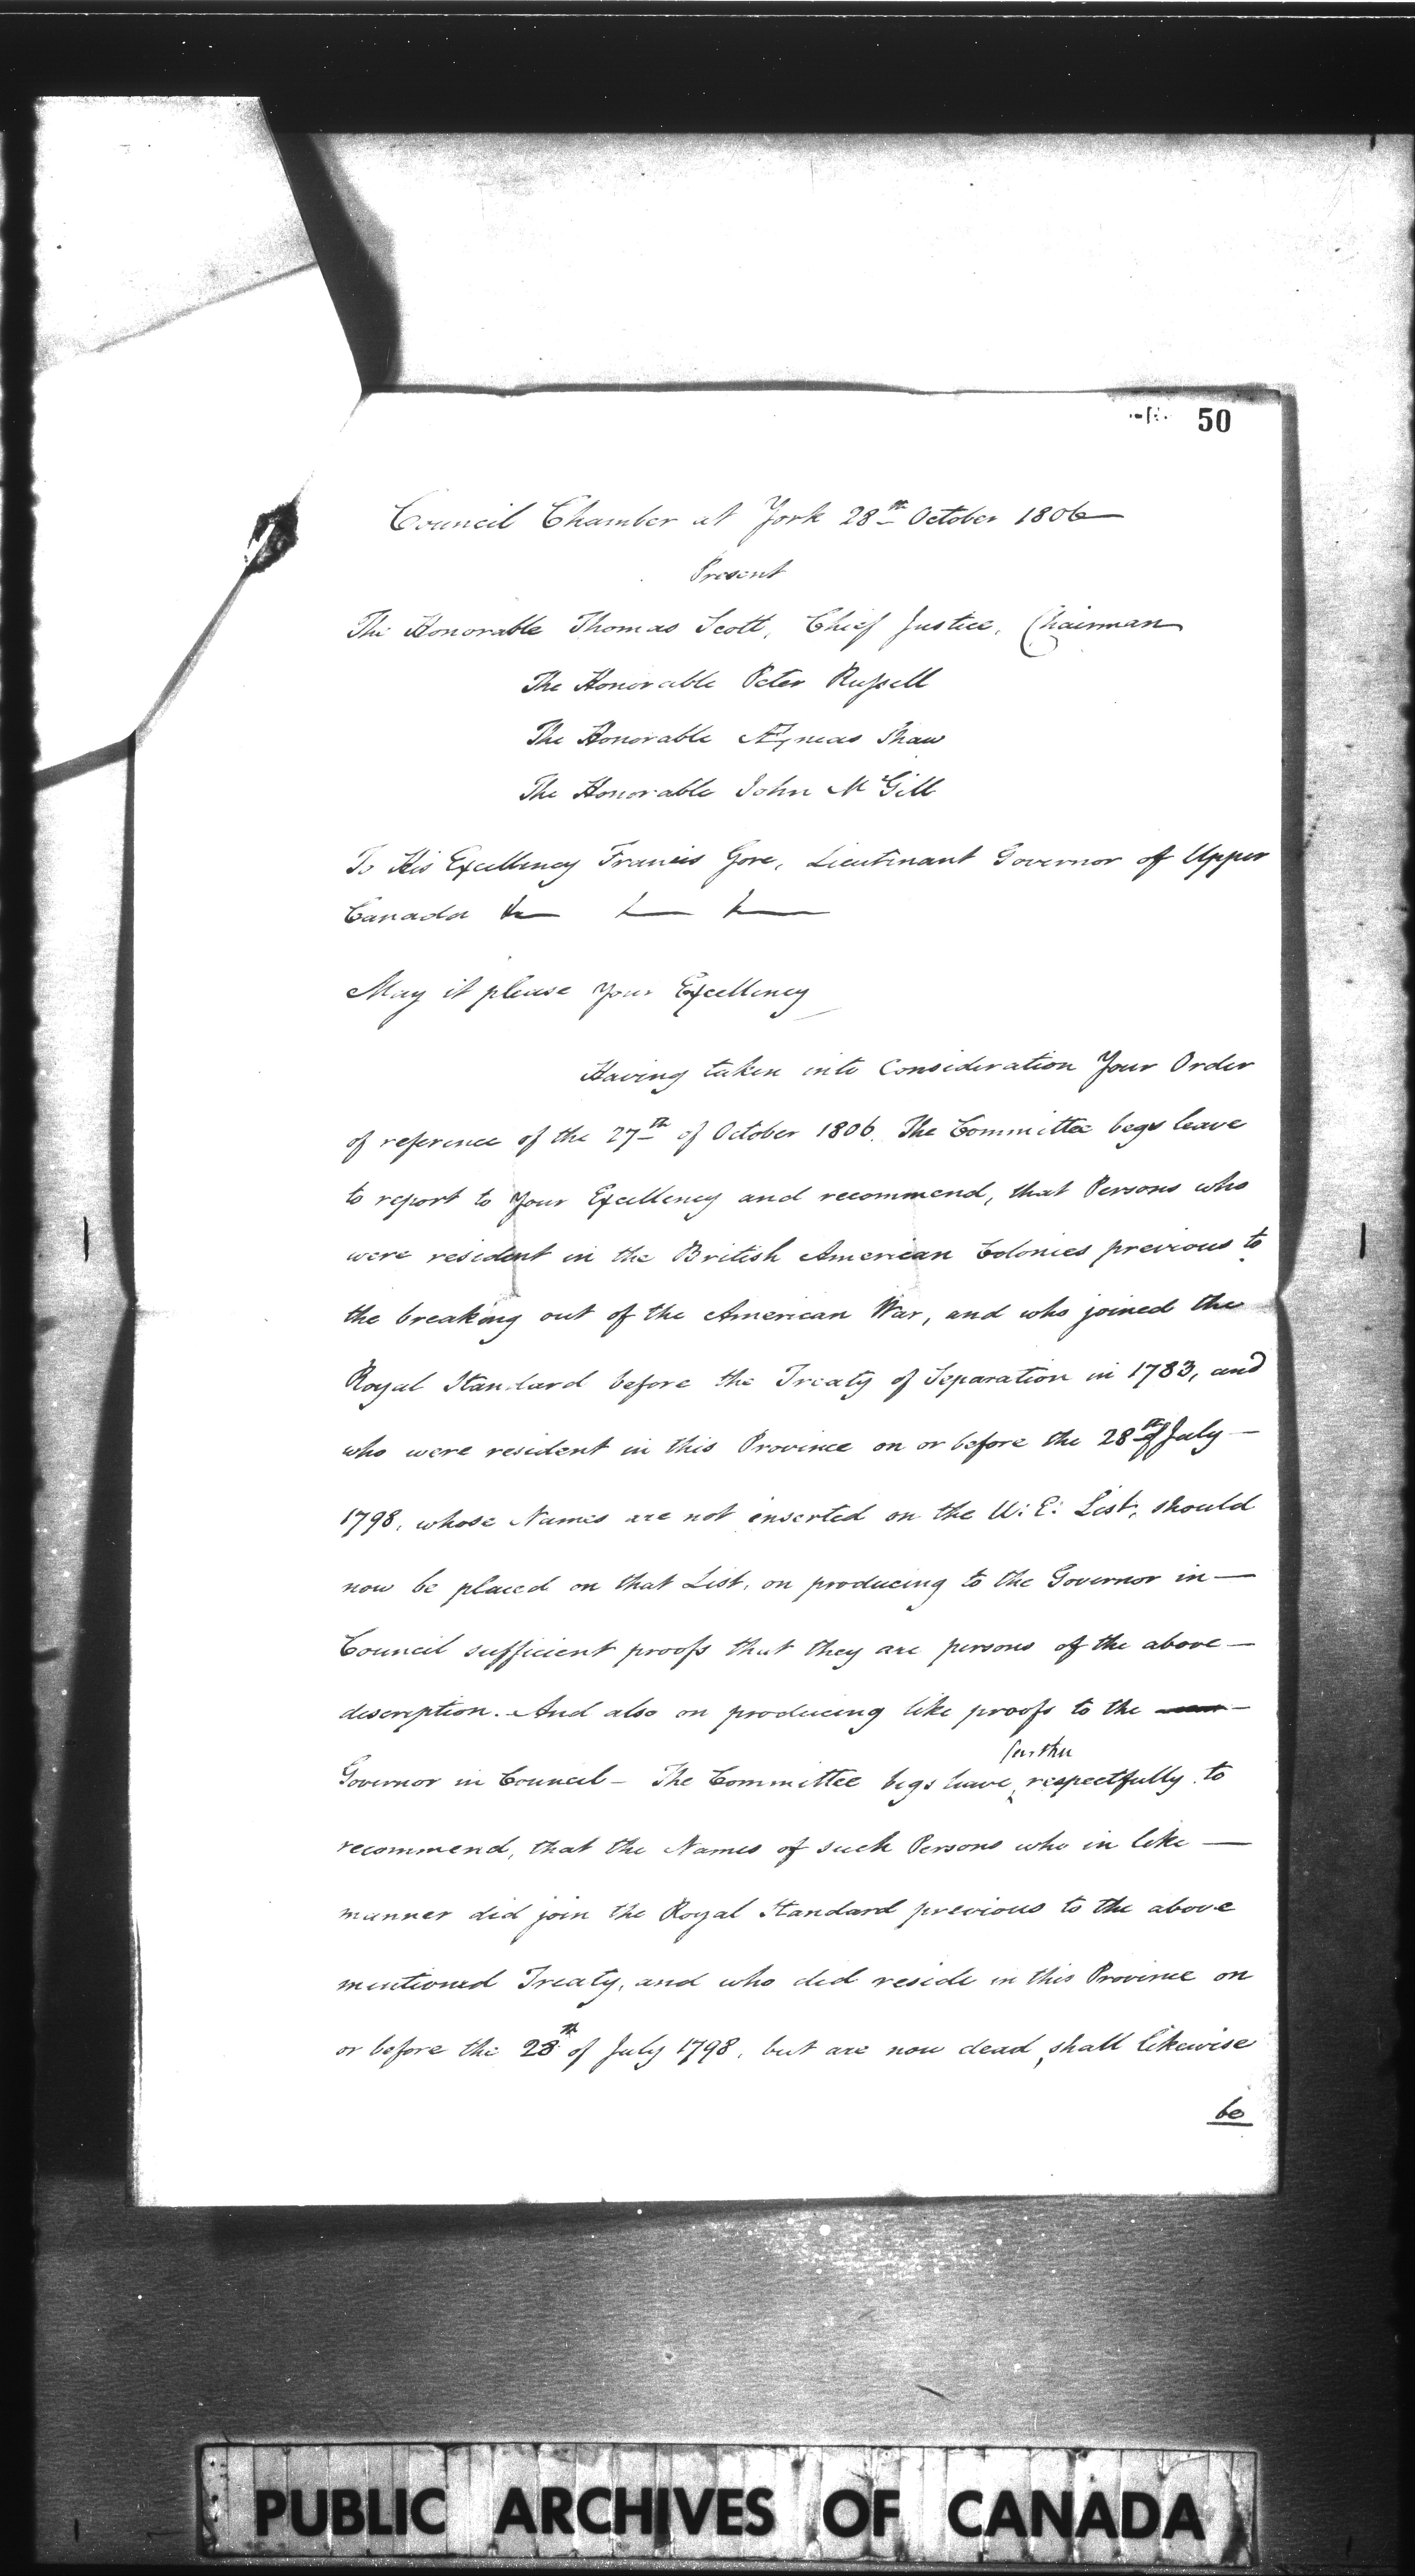 50
Council Chamber at York 28th October 1806
Present
The Honorable Thomas Scott, Chief Justice, Chairman
The Honorable Peter Russell
The Honorable Æneas Shaw
The Honorable John McGill
To His Excellency Francis Gore, Lieutenant Governor of Upper
Canada
May it please Your Excellency
Having taken into Consideration Your Order
of reference of the 27th of October 1806. The Committee begs leave
to report to Your Excellency and recommend, that Persons who
were resident in the British American Colonies previous to
the breaking out of the American War, and who joined the
Royal Standard before the Treaty of Separation in 1783, and
who were resident in this Province on or before the 28th of July —
1798, whose Names are not inserted on the U: E: List, should
now be placed on that List, on producing to the Governor in —
Council sufficient proofs that they are persons of the above —
description. And also on producing like proofs to the
further
Governor in Council — The Committee begs leave, respectfully to
recommend, that the Names of such Persons who in like —
manner did join the Royal Standard previous to the above
mentioned Treaty, and who did reside in this Province on
or before the 28th of July 1798, but are now dead, shall likewise
be
PUBLIC ARCHIVES OF CANADA